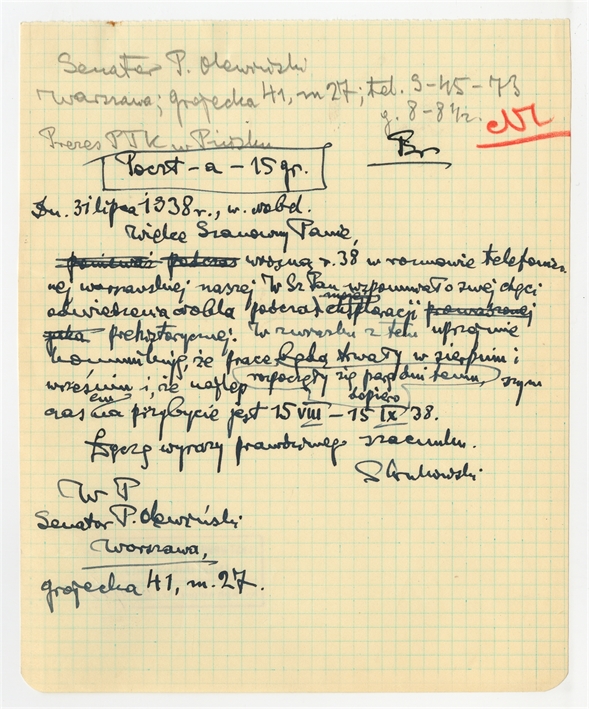 Senator P. Olewiński
Warszawa; Grójecka 41, m 27; tel. 9-45-73
g. 8-8 1/2.
Prezes PTK w Pińsku
Poczt-a-15 gr.
Dn. 31 lipca 1938 r., w. Wobd.
Wielce Szanowny Panie,
ponieważ podczas wiosną r. 38 w rozmowie telefonicz-
nej warszawskiej naszej W Sz Pan wspominał o swej chęci
odwiedzenia Wobla podczas mojej eksploracji
prehistorycznej. W związku z tem uprzejmie
komunikuję, że prace będą trwały w sierpniu i
wrześniu i, że najlep rozpoczęły się parę dni temu, szym
czasem na przybycie jest dopiero 15 VIII – 15 IX 38.
Łączę wyrazy prawdziwego szacunku.
W P
Senator P. Olewiński
Warszawa,
Grójecka 41, m. 27.